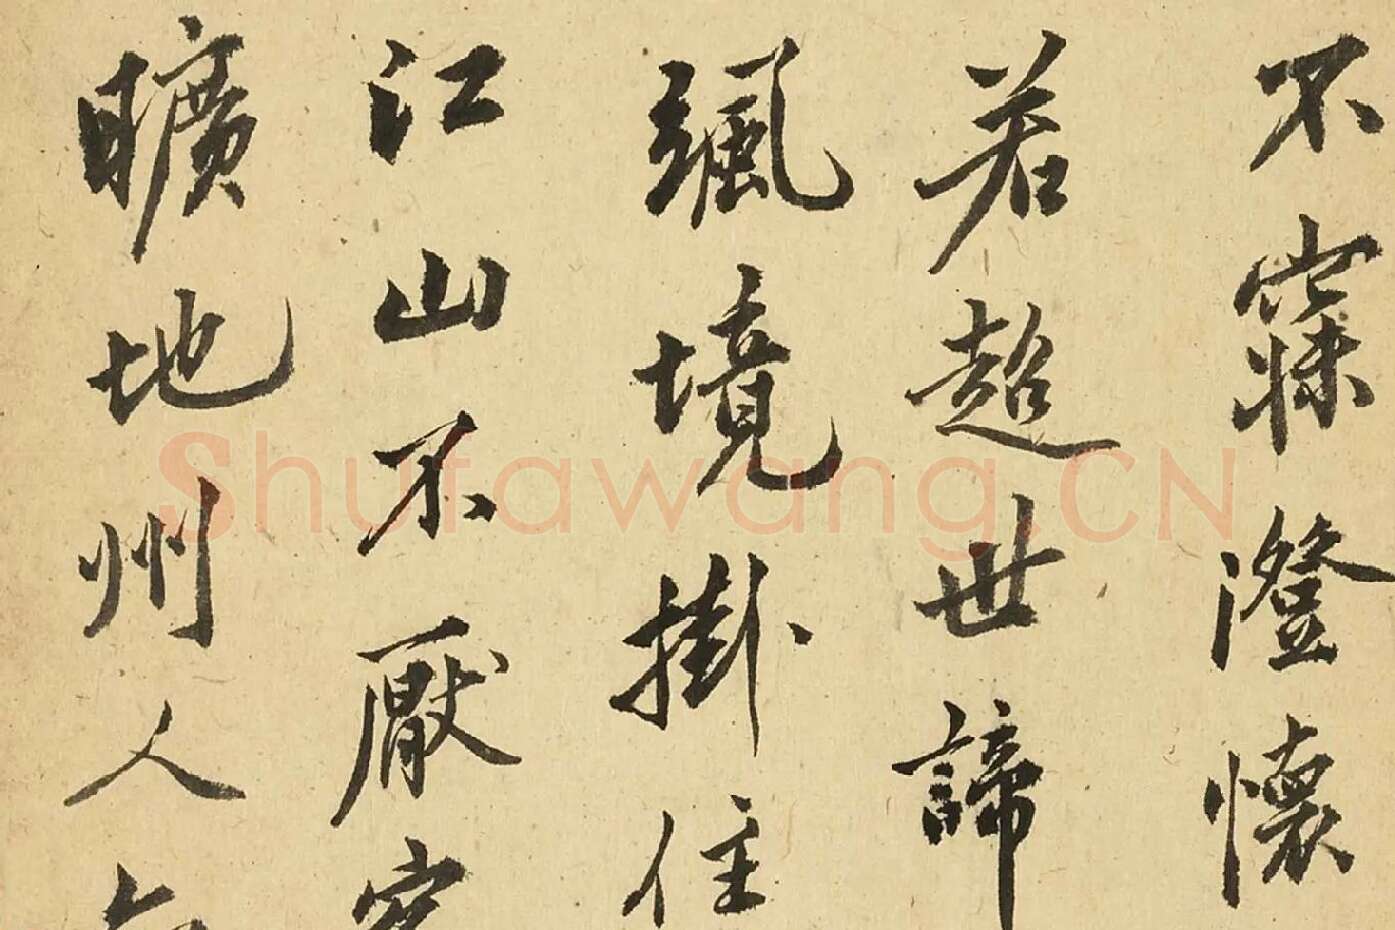 不寐澄懷
若超世諦
颯境掛住
江山不厭客
曠地州人
Shufawang.CN